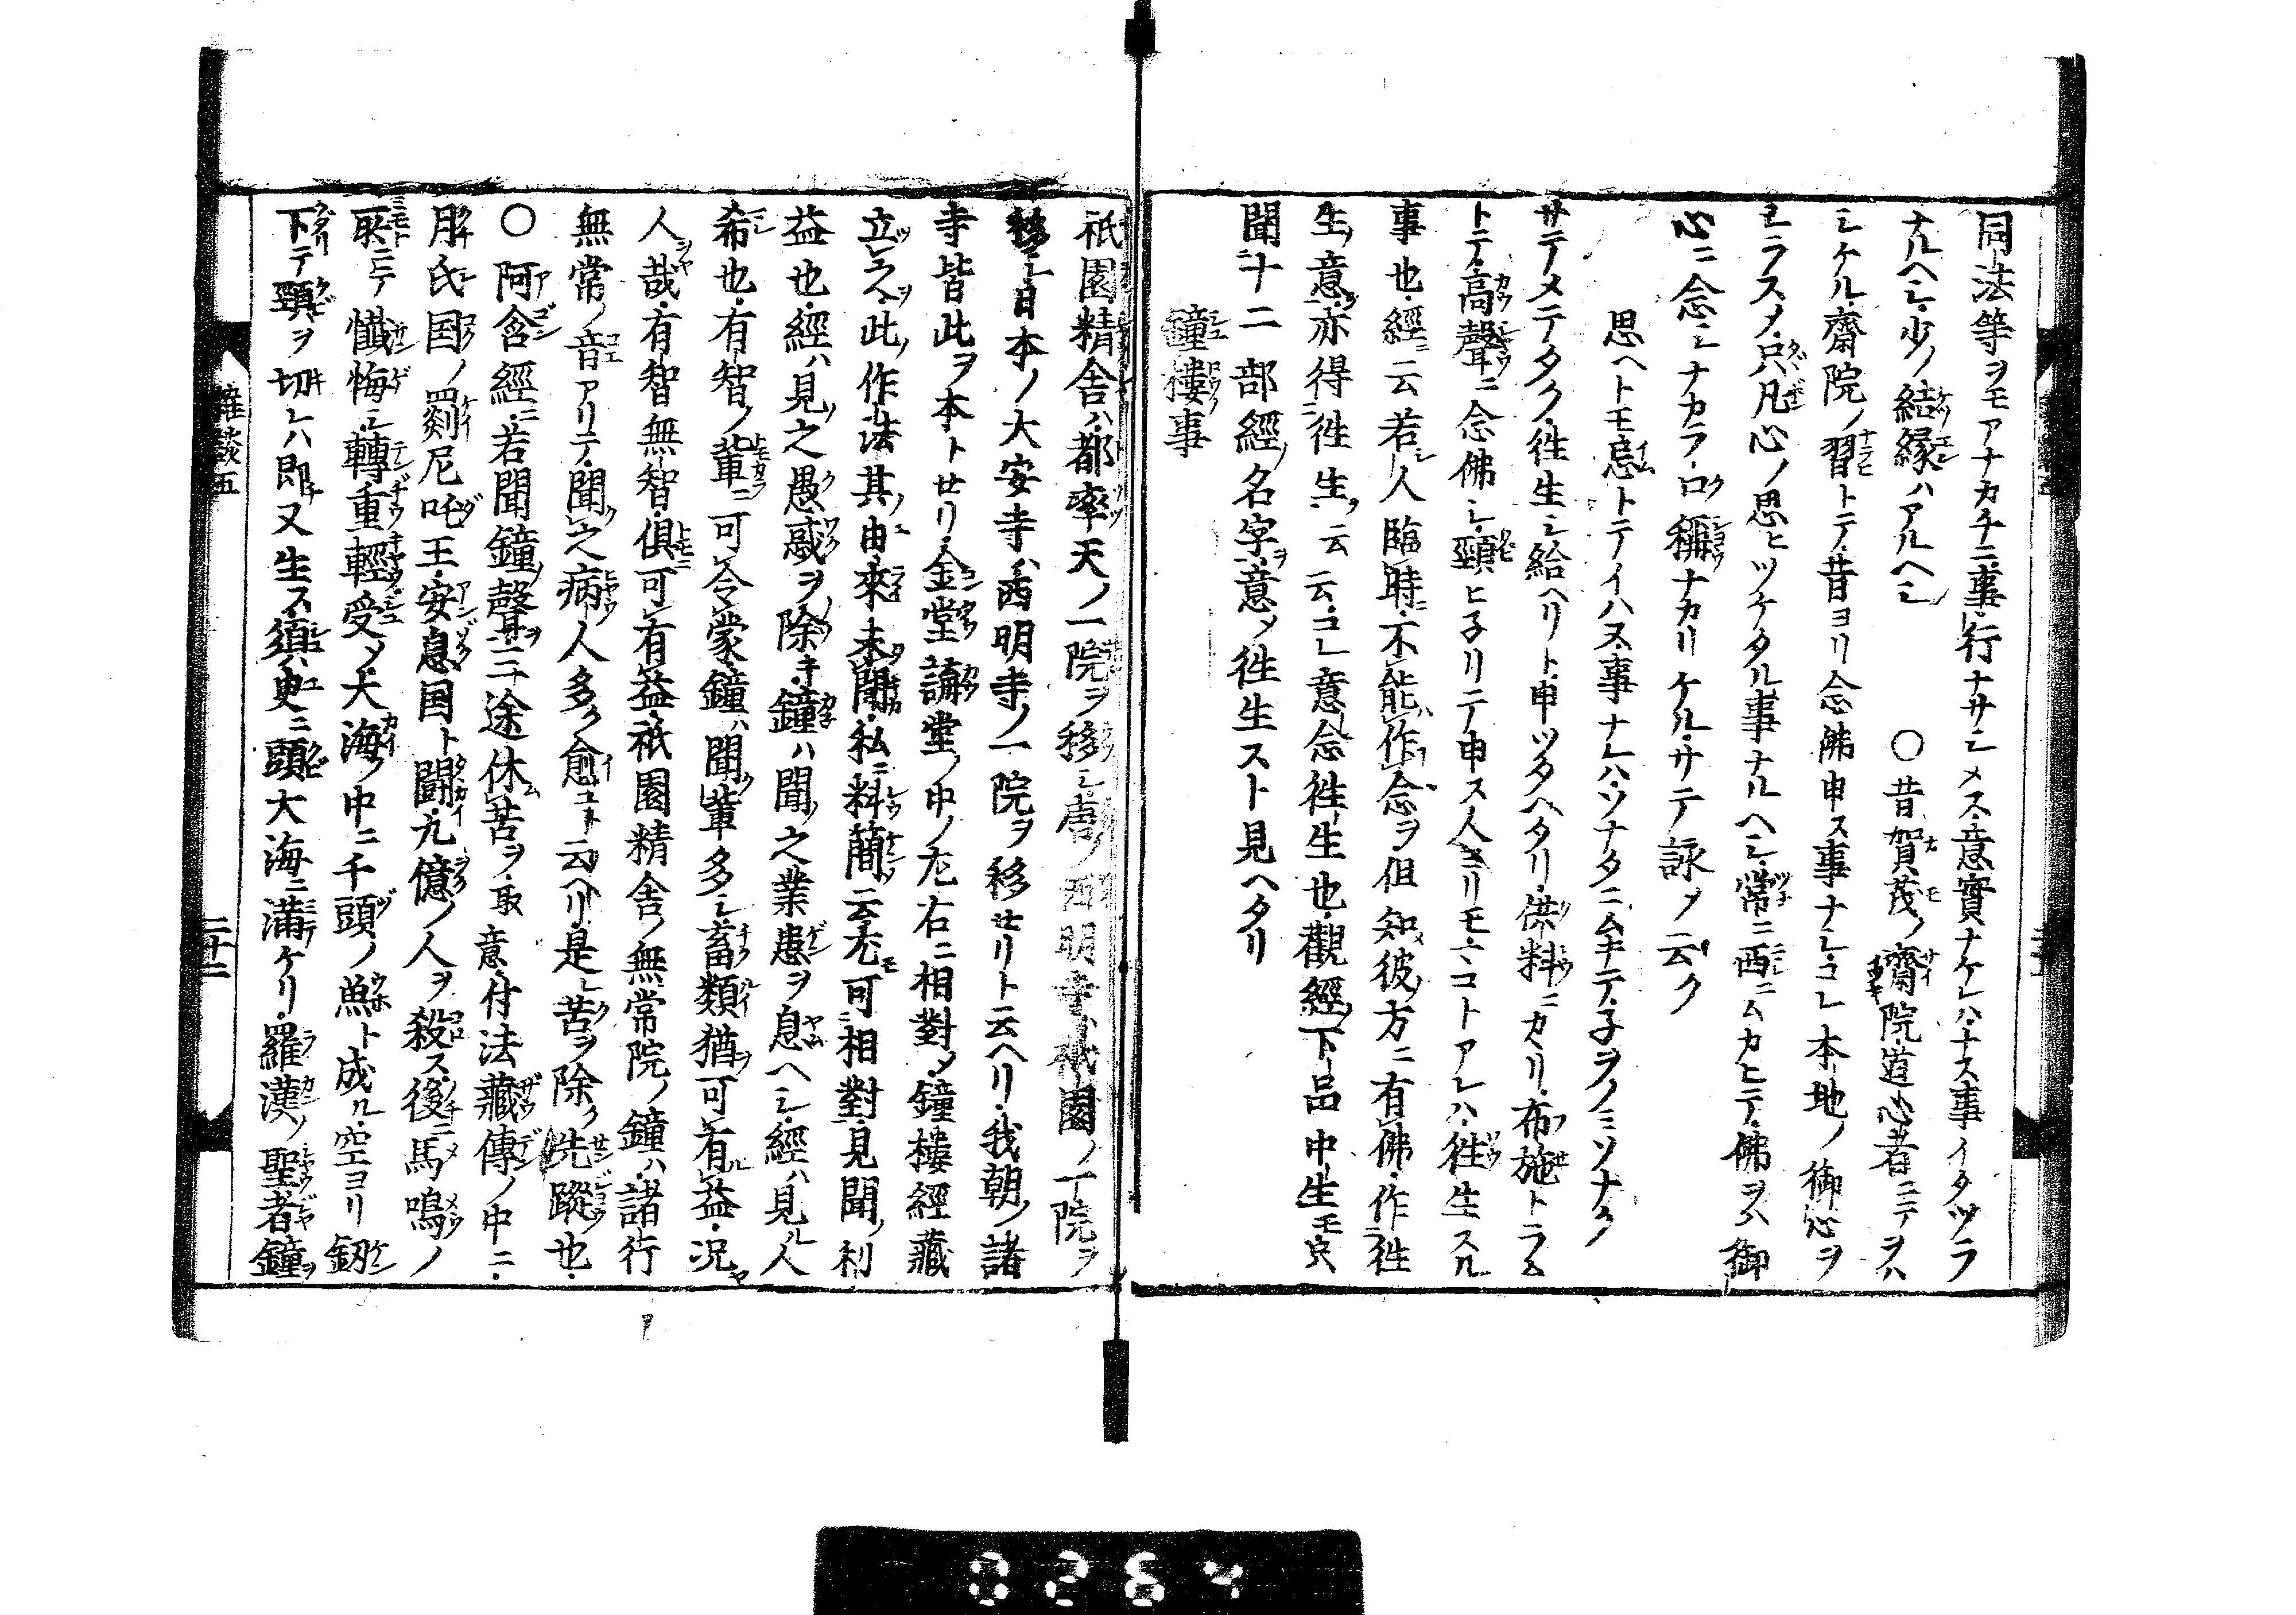 同法等ヲモアナカチニ事行ナサシメス意實ナケレハナス事イタツラ
ナルヘシ少ノ結縁ハアルヘシ 〇昔賀茂ノ齋院道心者ニテヲハ
シケル齋院ノ習トテ昔ヨリ念佛申ス事ナシコレ本地ノ御心ヲ
シラスメ只凡心ノ思ヒツケタル事ナルヘシ常ニ西ニムカヒテ佛ヲハ御
心ニ念シナカラ口稱ナカリケルサテ詠メ云ク
思ヘトモ忌トテイハヌ事ナレハソナタニムキテ子ヲノミソナク
サテメテタク徃生シ給ヘリト申ツタヘタリ供料ニカヽリ布施トラム
トテ高聲ニ念佛シ頸ヒ子リテ申ス人ヨリモコトアレハ徃生スル
事也經ニ云若人臨時不能作念ヲ但知彼方ニ有佛作徃
生ノ意亦得徃生ヲ云云コレ意念徃生也觀經ノ下品中生モ只
聞十二部經ノ名字ヲ意メ徃生スト見ヘタリ
鐘樓事
祇園精舎ハ都率天ノ一院ヲ移シ唐ノ西明寺ハ祇園ノ一院ヲ
移シ日本ノ大安寺ハ西明寺ノ一院ヲ移セリト云ヘリ我朝ノ諸
寺皆此ヲ本トセリ金堂講堂ノ中ノ左右ニ相對メ鐘樓經藏
立之ヲ此ノ作法其ノ由來未聞私ニ料簡云尤可相對見聞ノ利
益也經ハ見之愚惑ヲ除キ鐘ハ聞之業患ヲ息ヘシ經ハ見ル人
希也有智ノ輩ニ可令蒙鐘ハ聞ク輩多シ畜類猶可有益况ヤ
人ヲヤ哉有智無智俱可有益祇園精舎ノ無常院ノ鐘ハ諸行
無常ノ音アリテ聞之病人多ク愈ユト云ヘリ是レ苦ヲ除ク先蹤也
〇阿含經ニ若聞鐘聲ヲ三途休苦ヲ取意付法藏傳ノ中ニ
月氏国ノ罽尼吒王安息国ト闘九億ノ人ヲ殺ス後ニ馬鳴ノ
取ニテ懺悔シ轉重輕受メ大海ノ中ニ千頭ノ魚ト成ル空ヨリ釼
下テ頸ヲ切レハ即又生ス須臾ニ頭大海ニ滿ケリ羅漢ノ聖者鐘ヲ
雜談五
二十二
0264